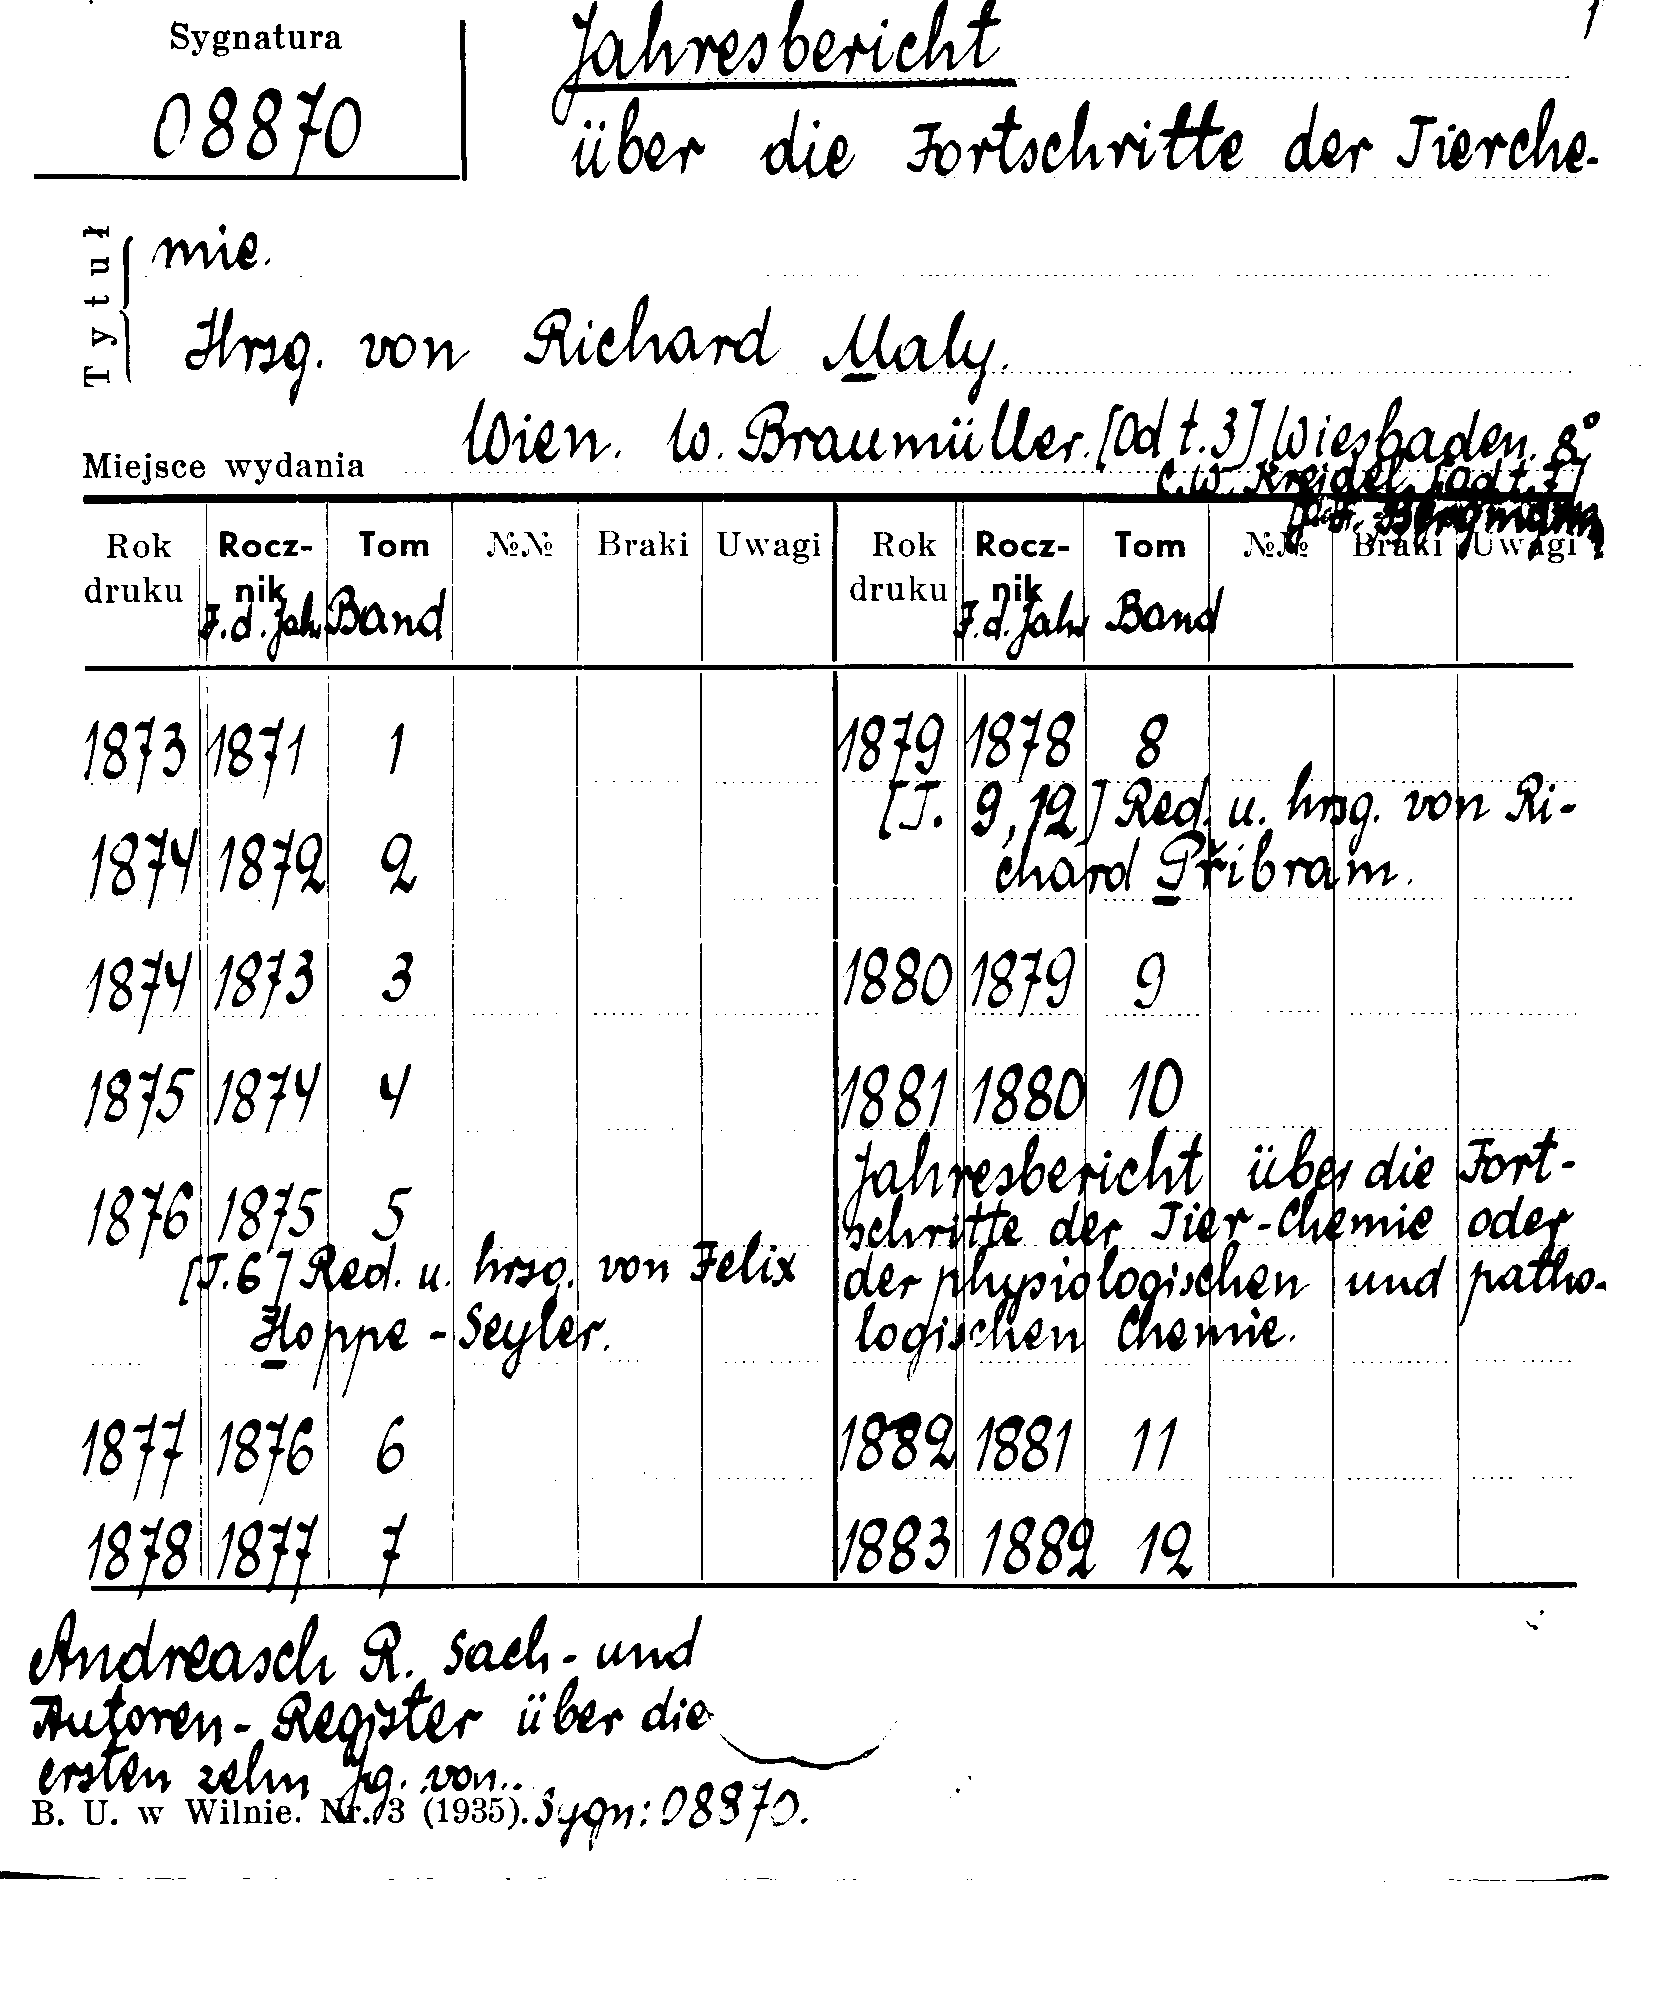 Sygnatura
08870
1
Jahresbericht
über die Fortschritte der Tierche-
Tytuł
mie.
Hrsg. von Richard Maly.
Miejsce wydania
Wien. W. Braumüller. [Od t.3] Wiesbaden. 8°
C.W. Kreidel. [od t.7]
J.F. Bergmann
Rok druku Rocz-nik Tom №№ Braki Uwagi Rok druku Rocz-nik Tom №№ Braki Uwagi
F.d.Jahr Band F.d.Jahr Band
1873 1871 1
1874 1872 2
1874 1873 3
1875 1874 4
1876 1875 5
[T.6] Red. u. hrsg. von Felix
Hoppe-Seyler.
1877 1876 6
1878 1877 7
1879 1878 8
[T. 9, 12] Red. u. hrsg. von Ri-
chard Přibram.
1880 1879 9
1881 1880 10
Jahresbericht über die Fort-
schritte der Tier-Chemie oder
der physiologischen und patho-
logischen Chemie.
1882 1881 11
1883 1882 12
Andreasch R. Sach- und
Autoren-Register über die
ersten zehn Jg. von..
B. U. w Wilnie. Nr. 3 (1935). Sygn: 08870.